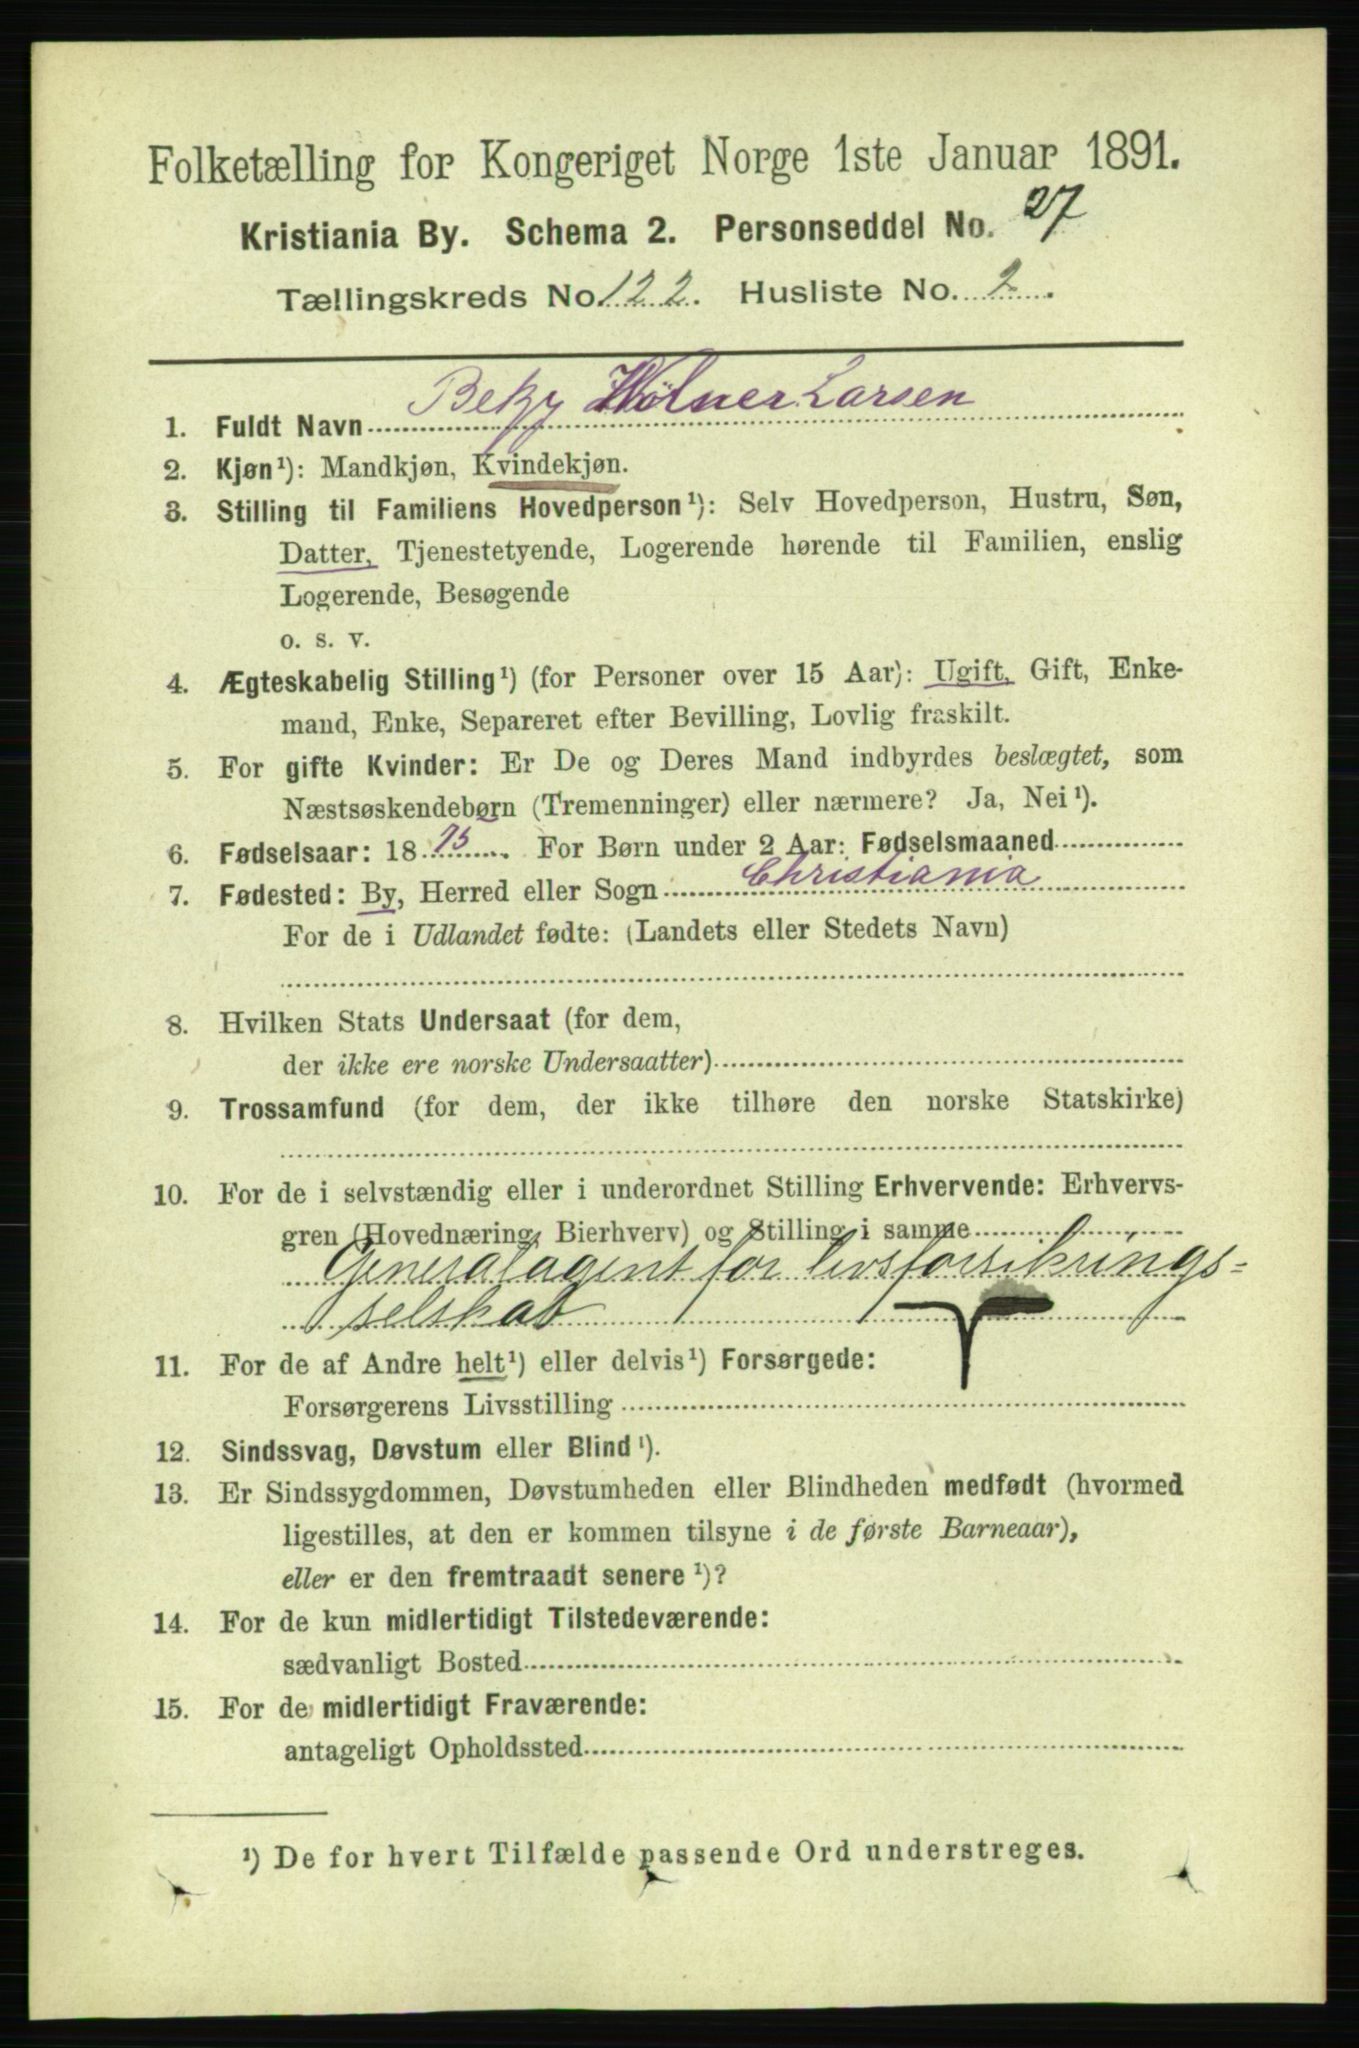 Folketælling for Kongeriget Norge 1ste Januar 1891.
Kristiania By. Schema 2. Personseddel No. 27
Tællingskreds No. 122. Husliste No. 2.
1. Fuldt Navn Betzy Wølner Larsen
2. Kjøn¹): Mandkjøn, Kvindekjøn.
3. Stilling til Familiens Hovedperson¹): Selv Hovedperson, Hustru, Søn,
Datter, Tjenestetyende, Logerende hørende til Familien, enslig
Logerende, Besøgende
o. s. v.
4. Ægteskabelig Stilling¹) (for Personer over 15 Aar): Ugift, Gift, Enke-
mand, Enke, Separeret efter Bevilling, Lovlig fraskilt.
5. For gifte Kvinder: Er De og Deres Mand indbyrdes beslægtet, som
Næstsøskendebørn (Tremenninger) eller nærmere? Ja, Nei¹).
6. Fødselsaar: 1875. For Børn under 2 Aar: Fødselsmaaned
7. Fødested: By, Herred eller Sogn Christiania
For de i Udlandet fødte: (Landets eller Stedets Navn)
8. Hvilken Stats Undersaat (for dem,
der ikke ere norske Undersaatter)
9. Trossamfund (for dem, der ikke tilhøre den norske Statskirke)
10. For de i selvstændig eller i underordnet Stilling Erhvervende: Erhvervs-
gren (Hovednæring, Bierhverv) og Stilling i samme
Generalagent for livsforsikrings=
selskab
11. For de af Andre helt¹) eller delvis¹) Forsørgede:
Forsørgerens Livsstilling
12. Sindssvag, Døvstum eller Blind¹).
13. Er Sindssygdommen, Døvstumheden eller Blindheden medfødt (hvormed
ligestilles, at den er kommen tilsyne i de første Barneaar),
eller er den fremtraadt senere¹)?
14. For de kun midlertidigt Tilstedeværende:
sædvanligt Bosted
15. For de midlertidigt Fraværende:
antageligt Opholdssted
¹) De for hvert Tilfælde passende Ord understreges.